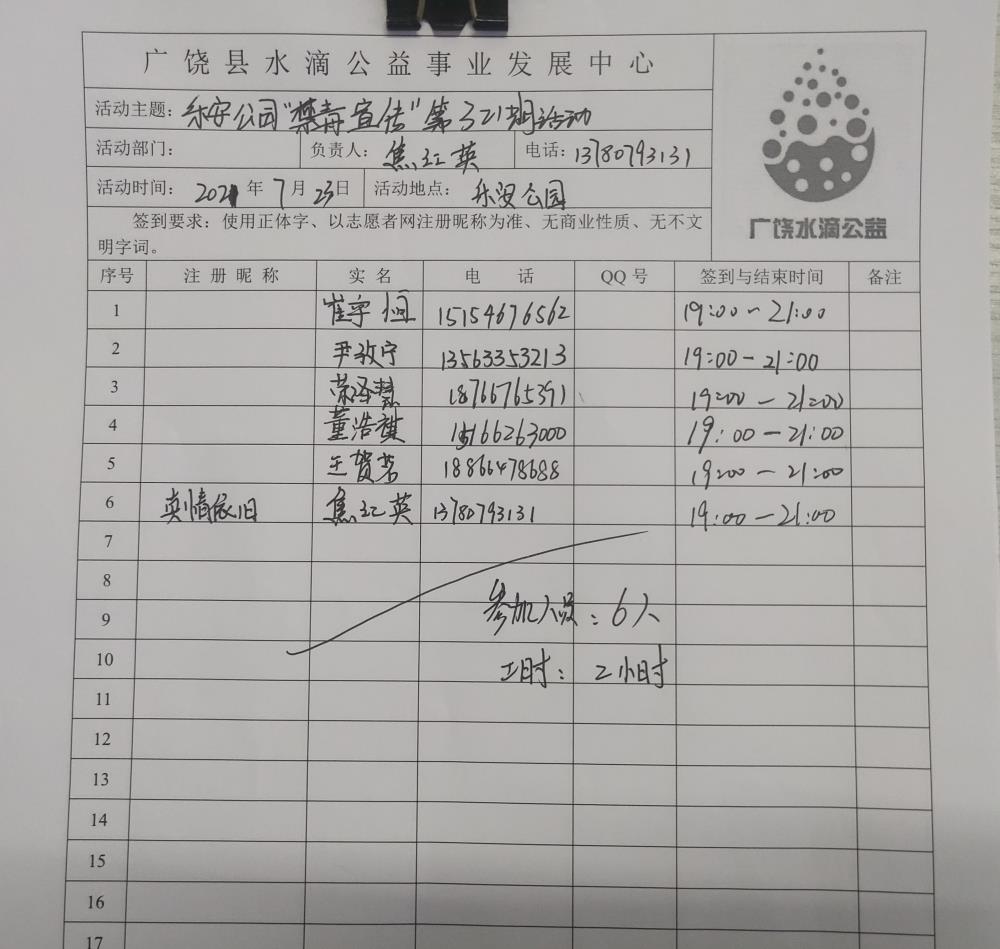 广饶县水滴公益事业发展中心
活动主题：乐安公园"禁毒宣传"第321期活动
活动部门： 负责人：焦红英 电话：13780793131
活动时间：2021年7月23日 活动地点：乐安公园
签到要求：使用正体字、以志愿者网注册昵称为准、无商业性质、无不文
明字词。
广饶水滴公益
序号 注册昵称 实名 电话 QQ号 签到与结束时间 备注
1 崔宇恒 15154676562 19:00-21:00
2 尹孜宁 13563353213 19:00-21:00
3 荣泽慧 18766765391 19:00-21:00
4 董浩祺 15166263000 19:00-21:00
5 王贺茗 18866478688 19:00-21:00
6 真情依旧 焦红英 13780793131 19:00-21:00
7
8
9 参加人员：6人
10 工时：2小时
11
12
13
14
15
16
17